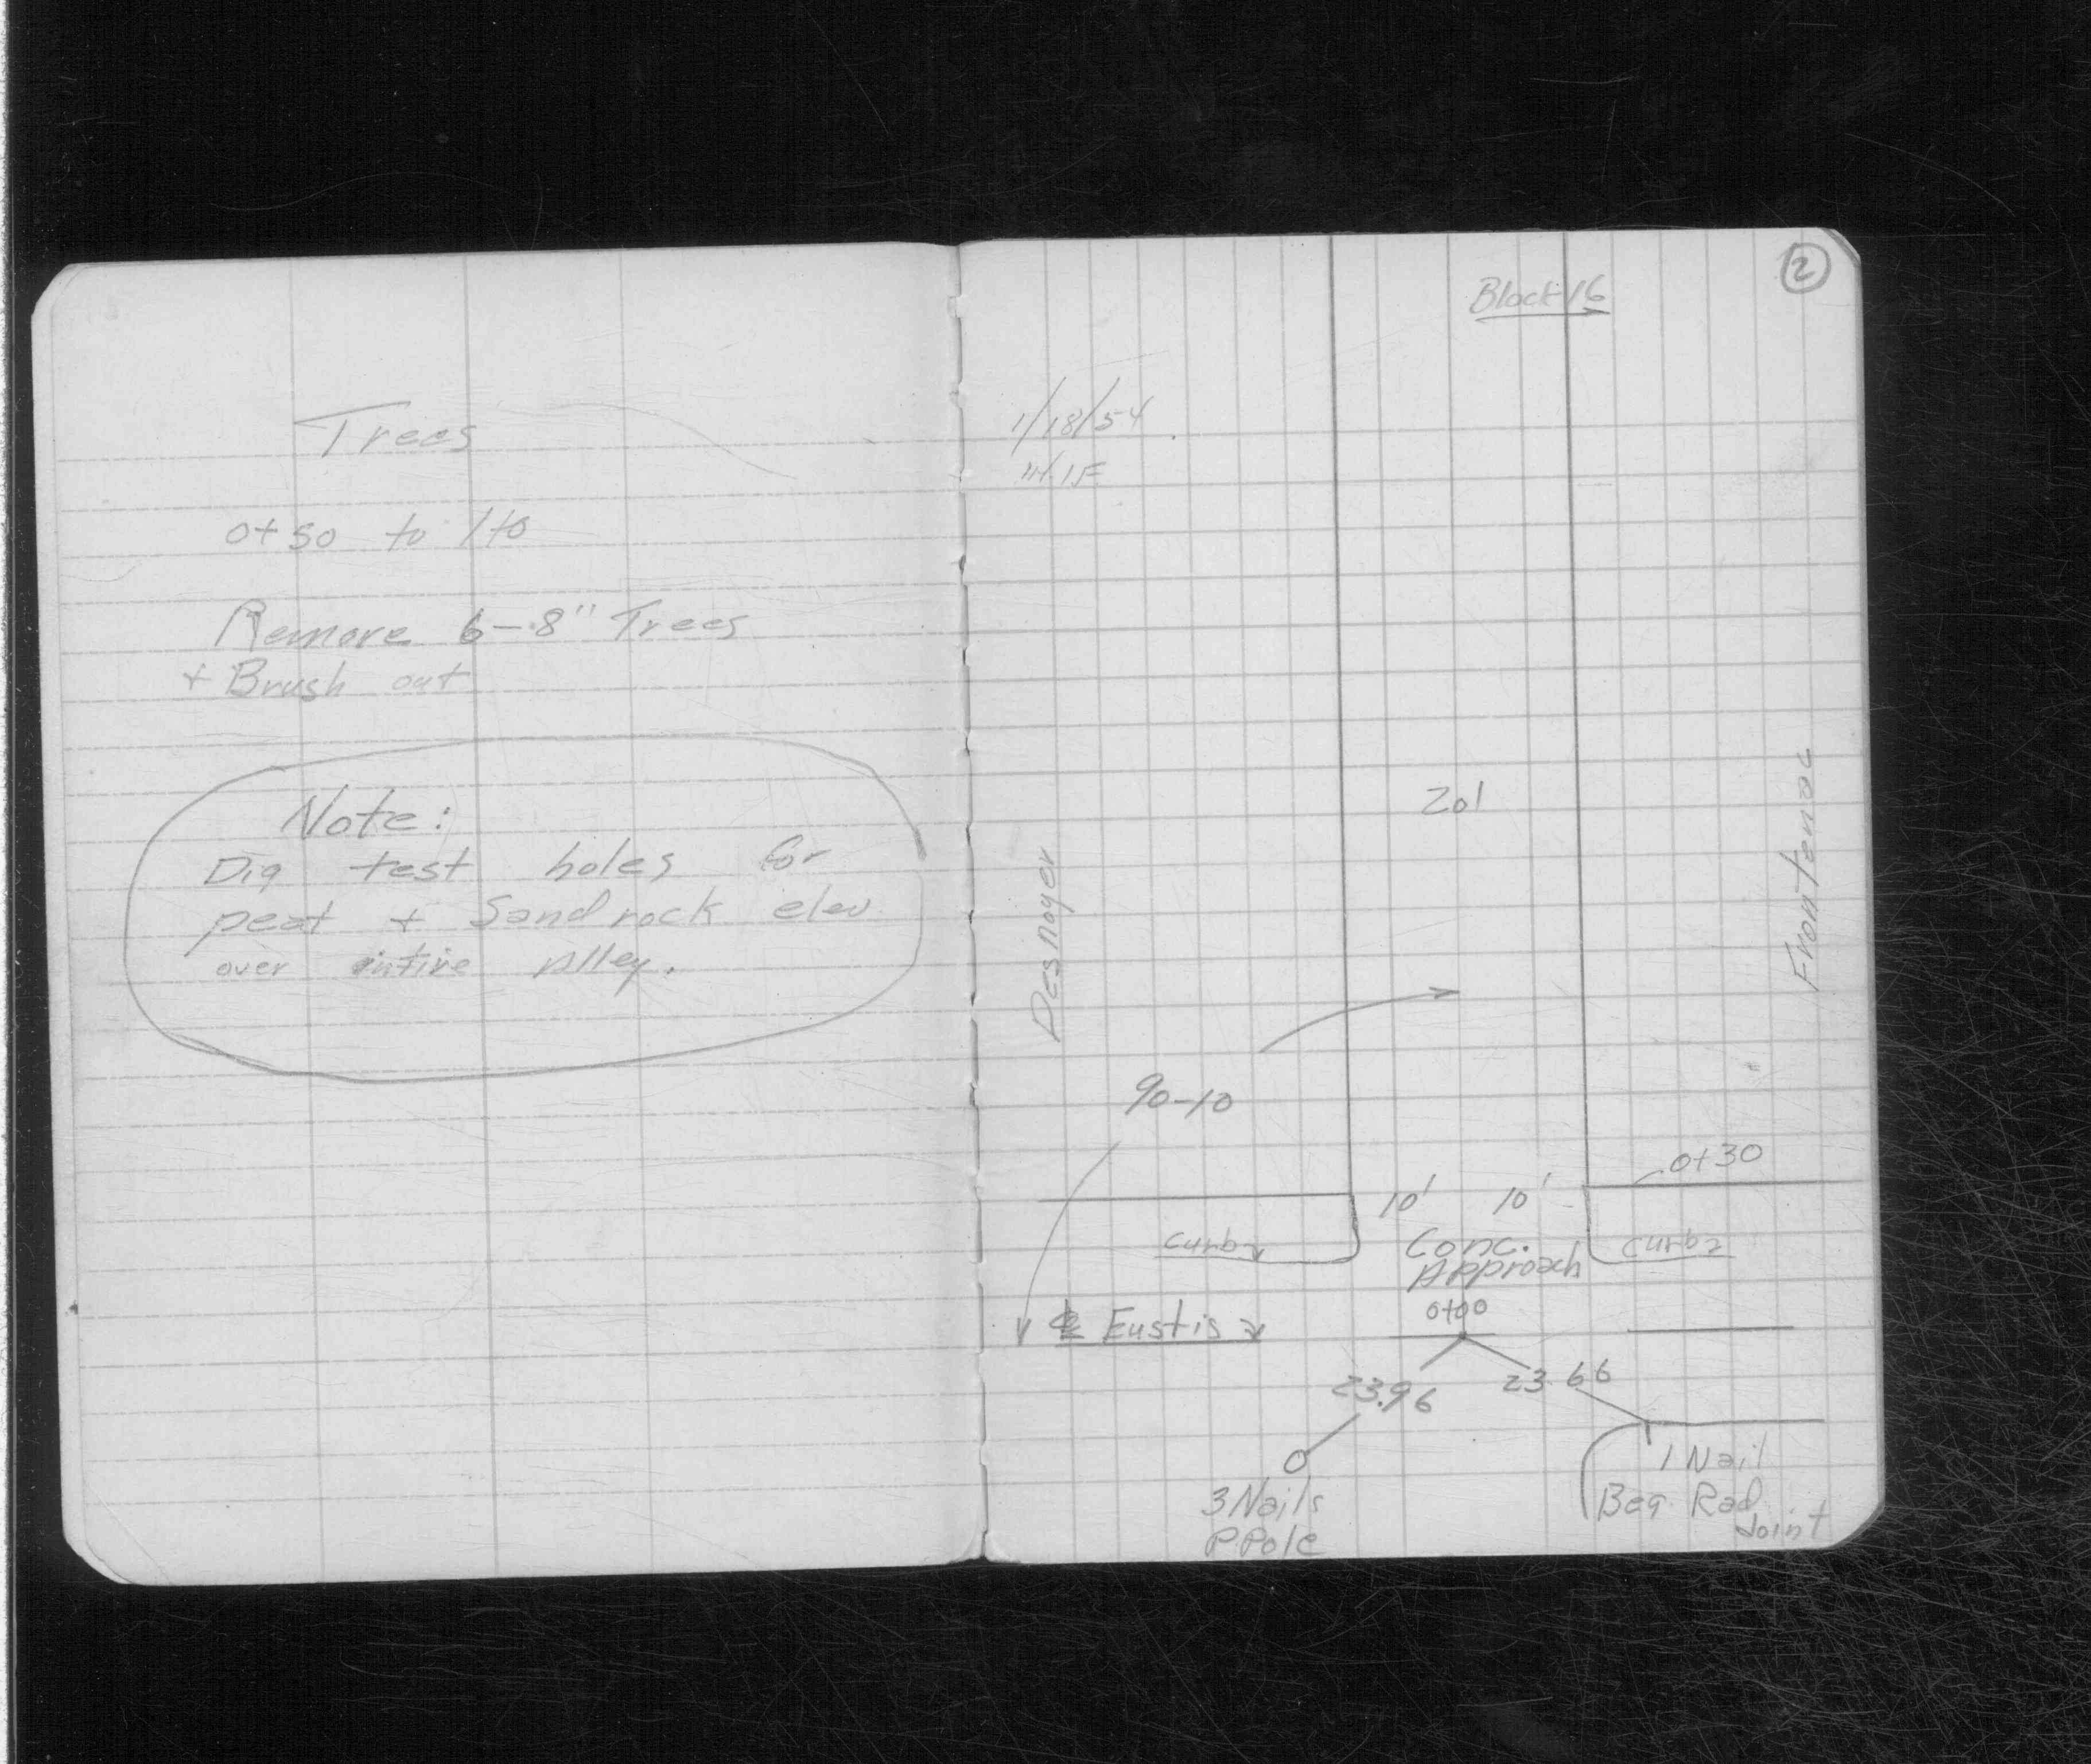 Trees
0+50 to 1+0
Remove 6-8" Trees
+ Brush out
Note:
Dig test holes for
peat + Sandrock elev
over entire Alley.
2
Block 16
1/18/54
20'
Desnoyer
Frontenac
90-10
0+30
10' 10'
curb
Conc.
Approach
curb
0+00
℄ Eustis
23.96
23.66
3 Nails
P Pole
1 Nail
Beg. Rad
Joint